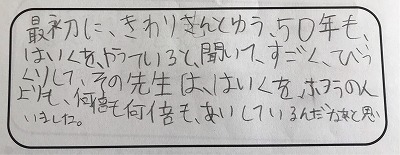 最初に、きわりさんとゆう、50年も、
はいくを、やっていると、聞いて、すごく、びっ
くりして、その先生は、はいくを、ホヲうの人
よりも、何倍も何倍も、あいしているんだなあと思い
いました。